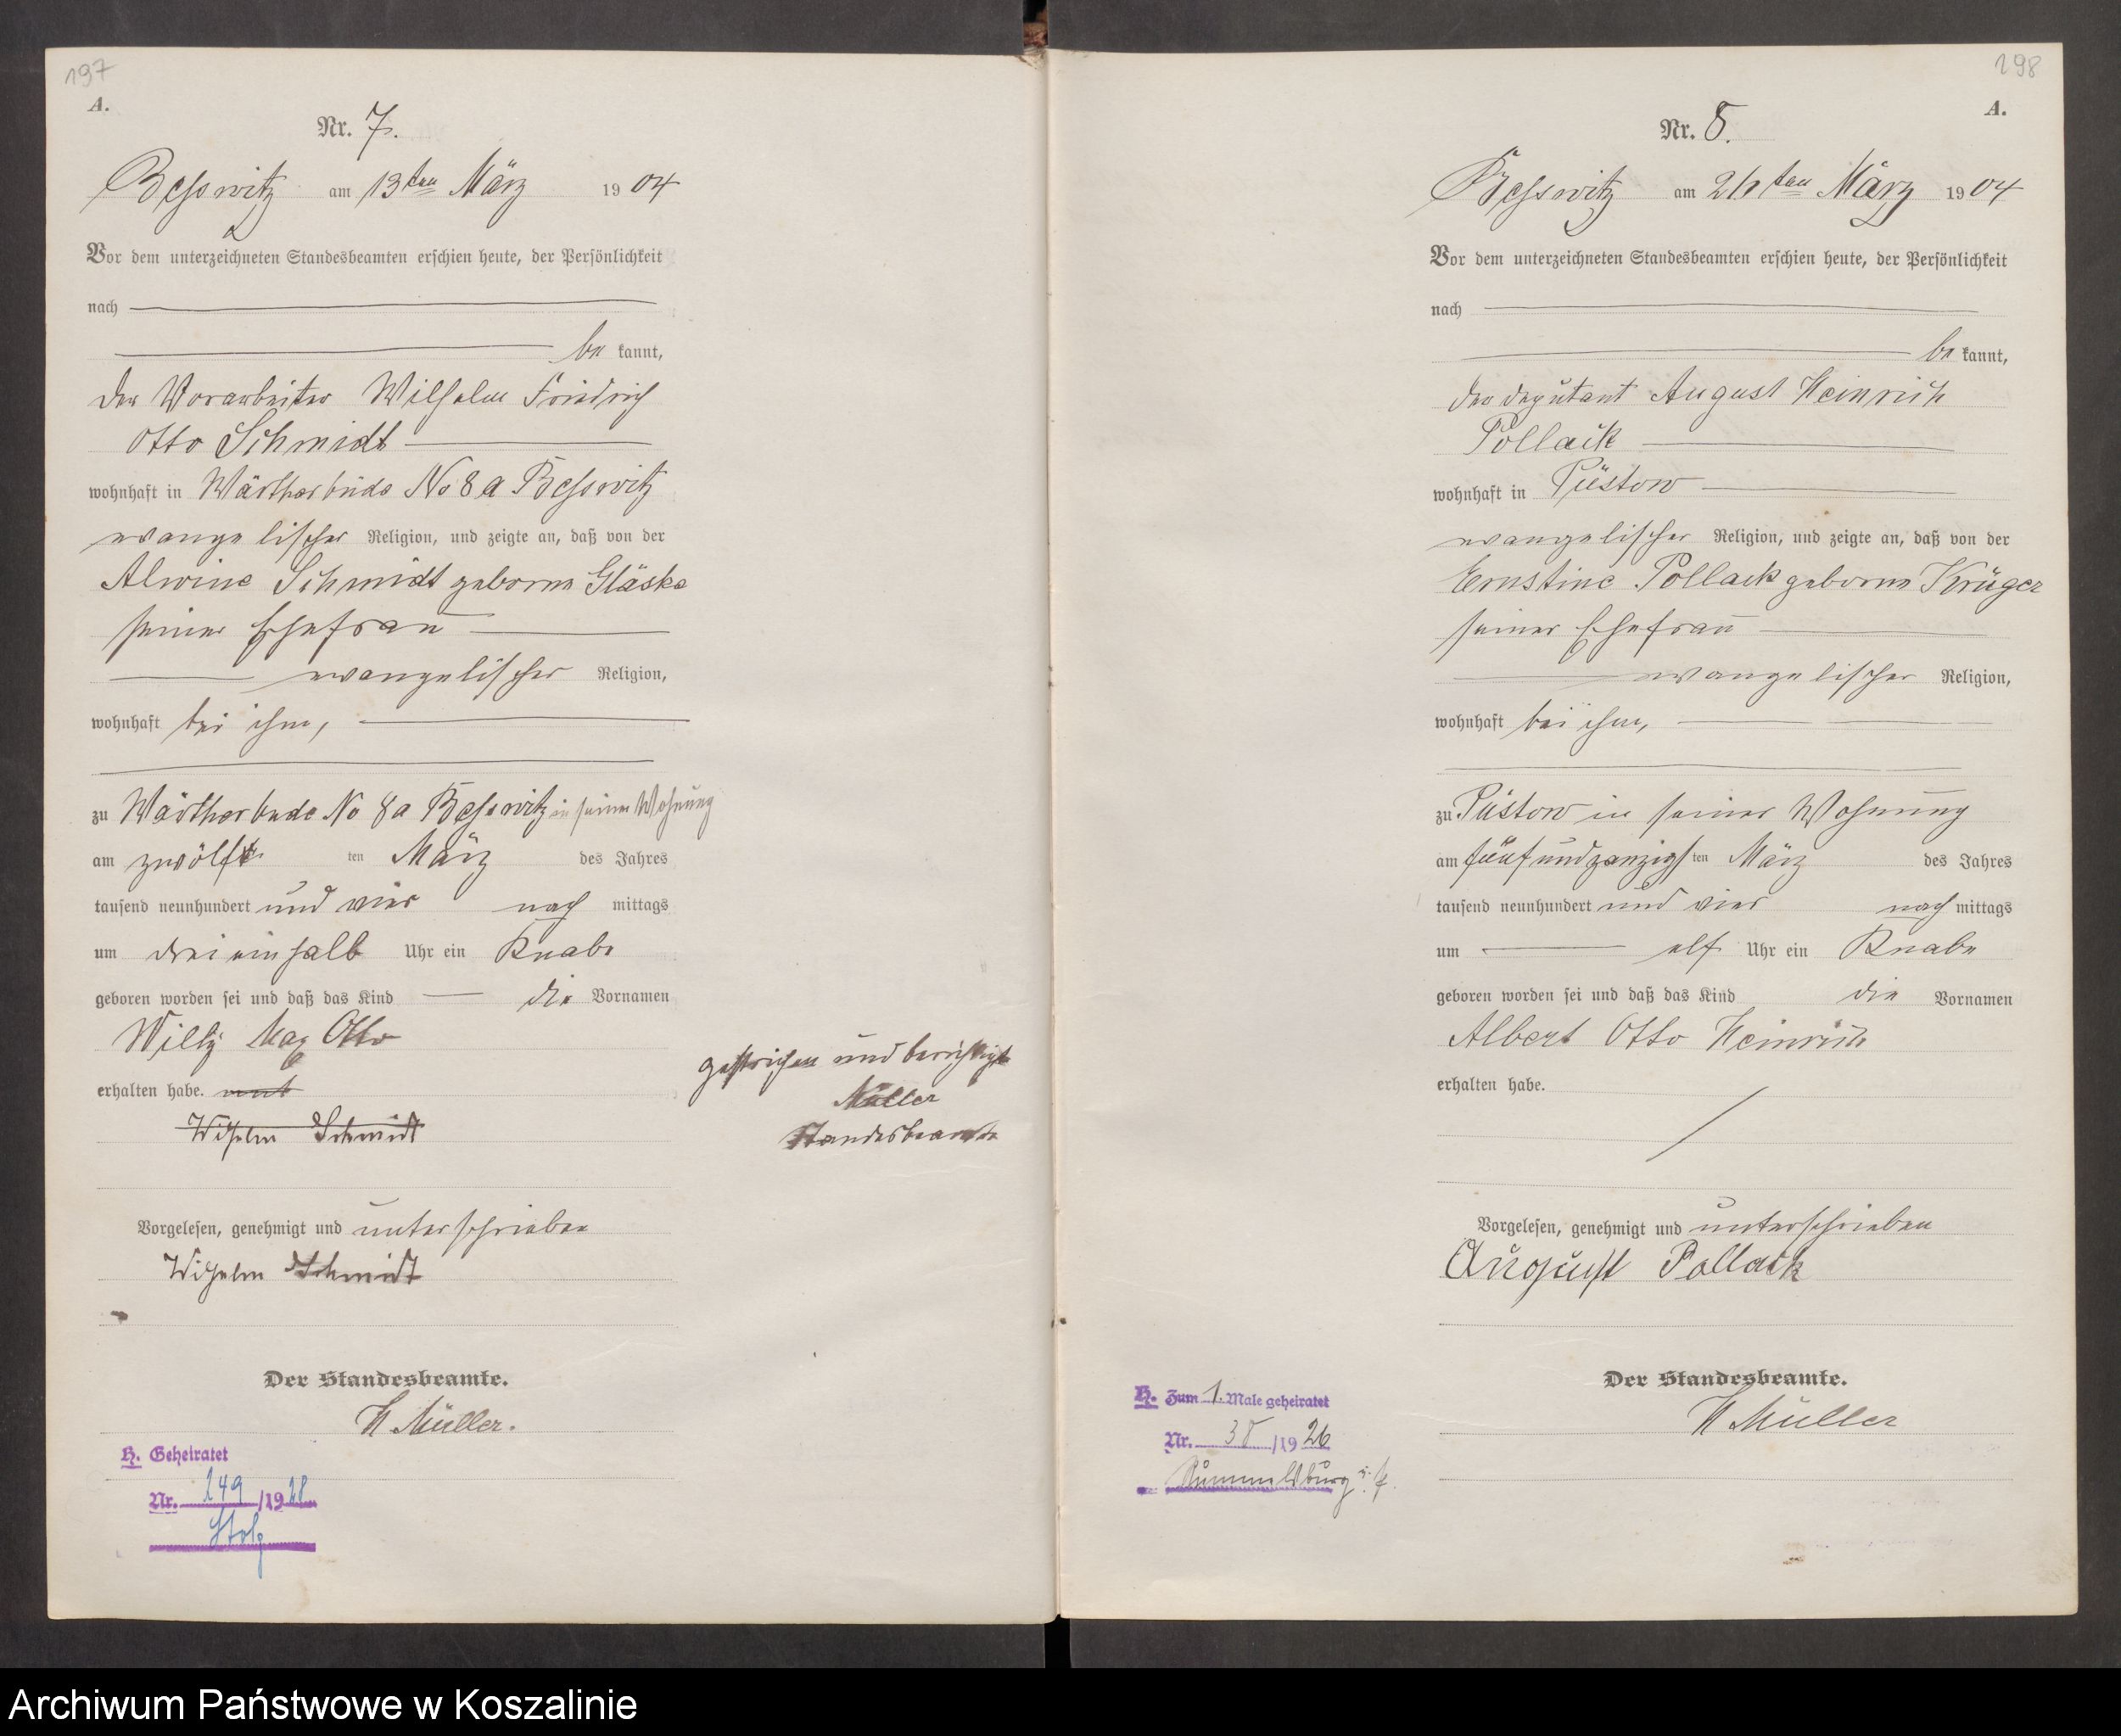 197
A.
Nr. 7.
Beßwitz am 13ten März 1904
Vor dem unterzeichneten Standesbeamten erschien heute, der Persönlichkeit
nach
be kannt,
der Vorarbeiter Wilhelm Friedrich
Otto Schmidt
wohnhaft in Wärtherbude No 8a Beßwitz
evangelischer Religion, und zeigte an, daß von der
Alwine Schmidt geborne Gläske
seiner Ehefrau
evangelischer Religion,
wohnhaft bei ihm,
zu Wärtherbude No 8a Beßwitz in seiner Wohnung
am zwölf ten März des Jahres
tausend neunhundert und vier nach mittags
um drei einhalb Uhr ein Knabe
geboren worden sei und daß das Kind die Vornamen
Willy Max Otto
erhalten habe.
Wilhelm Schmidt
gestrichen und berichtigt
Müller
Standesbeamte
Vorgelesen, genehmigt und unterschrieben
Wilhelm Schmidt
Der Standesbeamte.
H Müller.
H. Geheiratet
Nr. 249/1928
Stolp
298
A.
Nr. 8.
Beßwitz am 26ten März 1904
Vor dem unterzeichneten Standesbeamten erschien heute, der Persönlichkeit
nach
be kannt,
der Deputant August Heinrich
Pollack
wohnhaft in Püstow
evangelischer Religion, und zeigte an, daß von der
Ernstine Pollack geborne Krüger
seiner Ehefrau
evangelischer Religion,
wohnhaft bei ihm,
zu Püstow in seiner Wohnung
am fünfundzanzigsten März des Jahres
tausend neunhundert und vier nach mittags
um elf Uhr ein Knabe
geboren worden sei und daß das Kind die Vornamen
Albert Otto Heinrich
erhalten habe.
Vorgelesen, genehmigt und unterschrieben
August Pollack
Der Standesbeamte.
H Müller
H. Zum 1. Male geheiratet
Nr. 38/1926
Rummelsburg i. P.
Archiwum Państwowe w Koszalinie